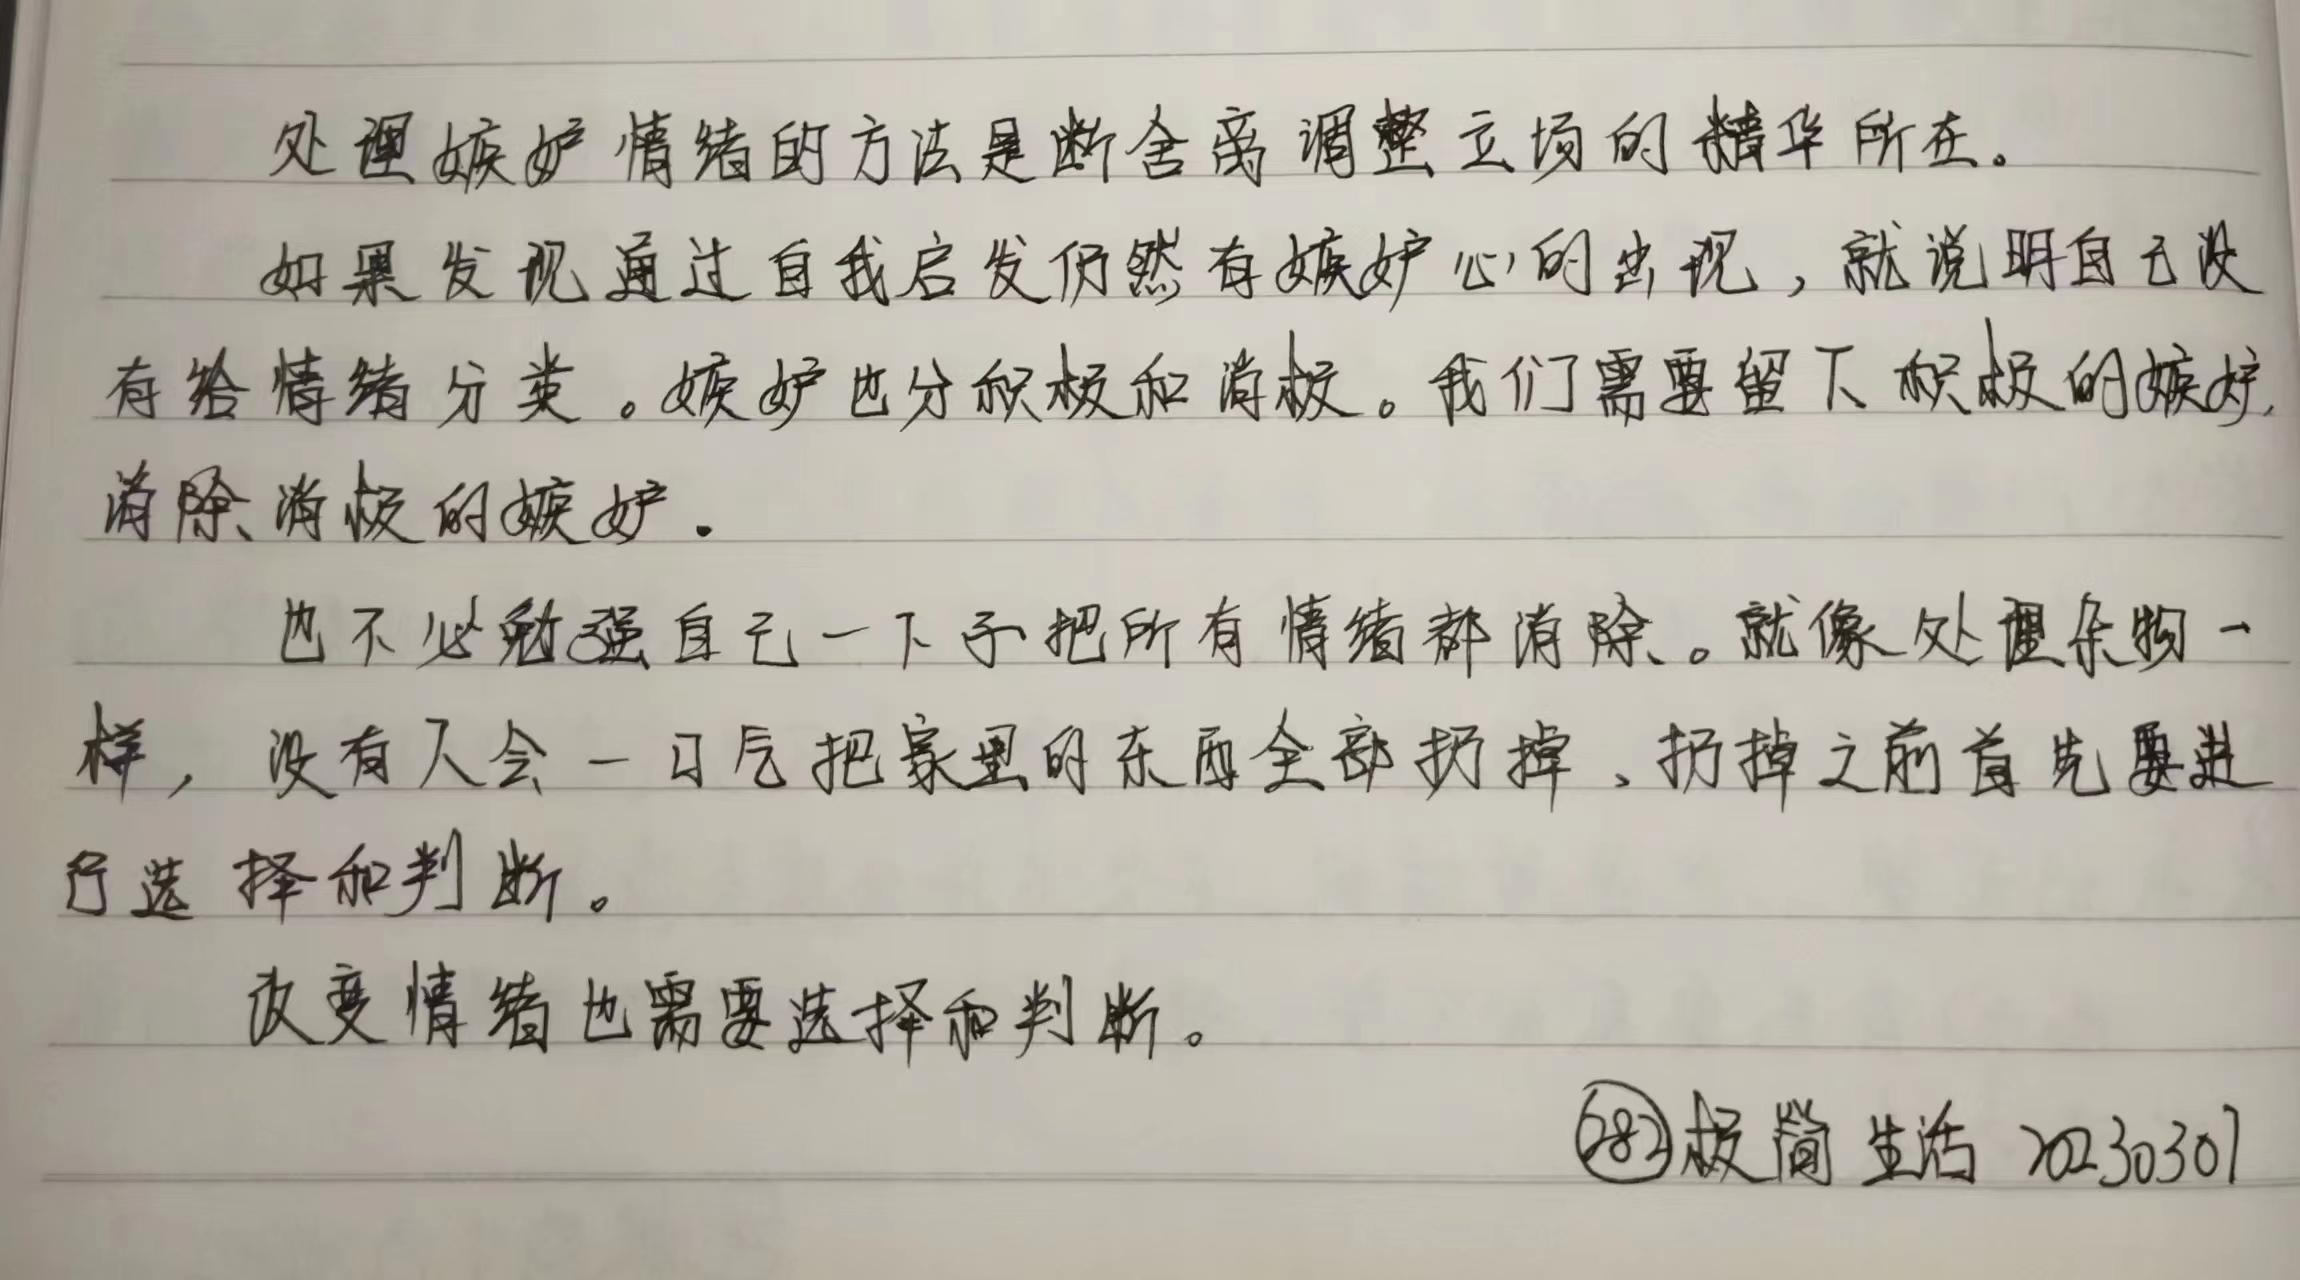 处理嫉妒情绪的方法是断舍离调整立场的精华所在。
如果发现通过自我启发仍然有嫉妒心的出现，就说明自己没
有给情绪分类。嫉妒也分积极和消极。我们需要留下积极的嫉妒,
消除消极的嫉妒.
也不必勉强自己一下子把所有情绪都消除。就像处理杂物一
样，没有人会一口气把家里的东西全部扔掉、扔掉之前首先要进
行选择和判断。
改变情绪也需要选择和判断。
282 极简生活 20230307